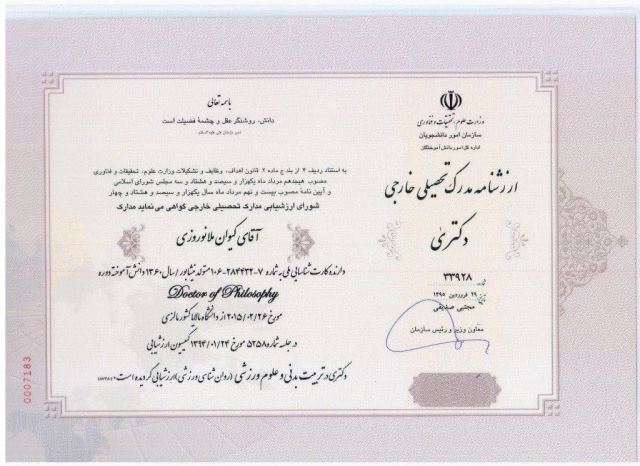 باسمه تعالی
دانش، روشنگر عقل و چشمۀ فضیلت است
وزارت علوم، تحقیقات و فناوری
سازمان امور دانشجویان
اداره کل امور دانش‌آموختگان
ارزشنامه مدرک تحصیلی خارجی
دکتری
شماره ۳۳۹۲۸
تاریخ ۲۹ فروردین ۱۳۹۵
مجتبی صدیقی
معاون وزیر و رئیس سازمان
به استناد ردیف ۴ از بند ج ماده ۲ قانون اهداف، وظایف و تشکیلات وزارت علوم، تحقیقات و فناوری
مصوب هیجدهم مرداد ماه یکهزار و سیصد و هشتاد و سه مجلس شورای اسلامی
و آیین نامۀ مصوب بیست و نهم مرداد ماه سال یکهزار و سیصد و هشتاد و چهار
شورای ارزشیابی مدارک تحصیلی خارجی گواهی می نماید مدارک
آقای کیوان ملانوروزی
دارنده کارت شناسایی ملی به شماره ۷-۲۸۴۴۳۲-۱۰۶ متولد نیشابور / سال ۱۳۶۰ دانش آموخته دوره
Doctor of Philosophy
مورخ ۲۰۱۵/۰۲/۲۶ از دانشگاه مالایا کشور مالزی
در جلسه شماره ۵۲۵۸ مورخ ۱۳۹۴/۰۱/۲۴ کمیسیون ارزشیابی
دکتری در تربیت بدنی و علوم ورزشی (روان شناسی ورزشی) ارزشیابی گردیده است
0007183